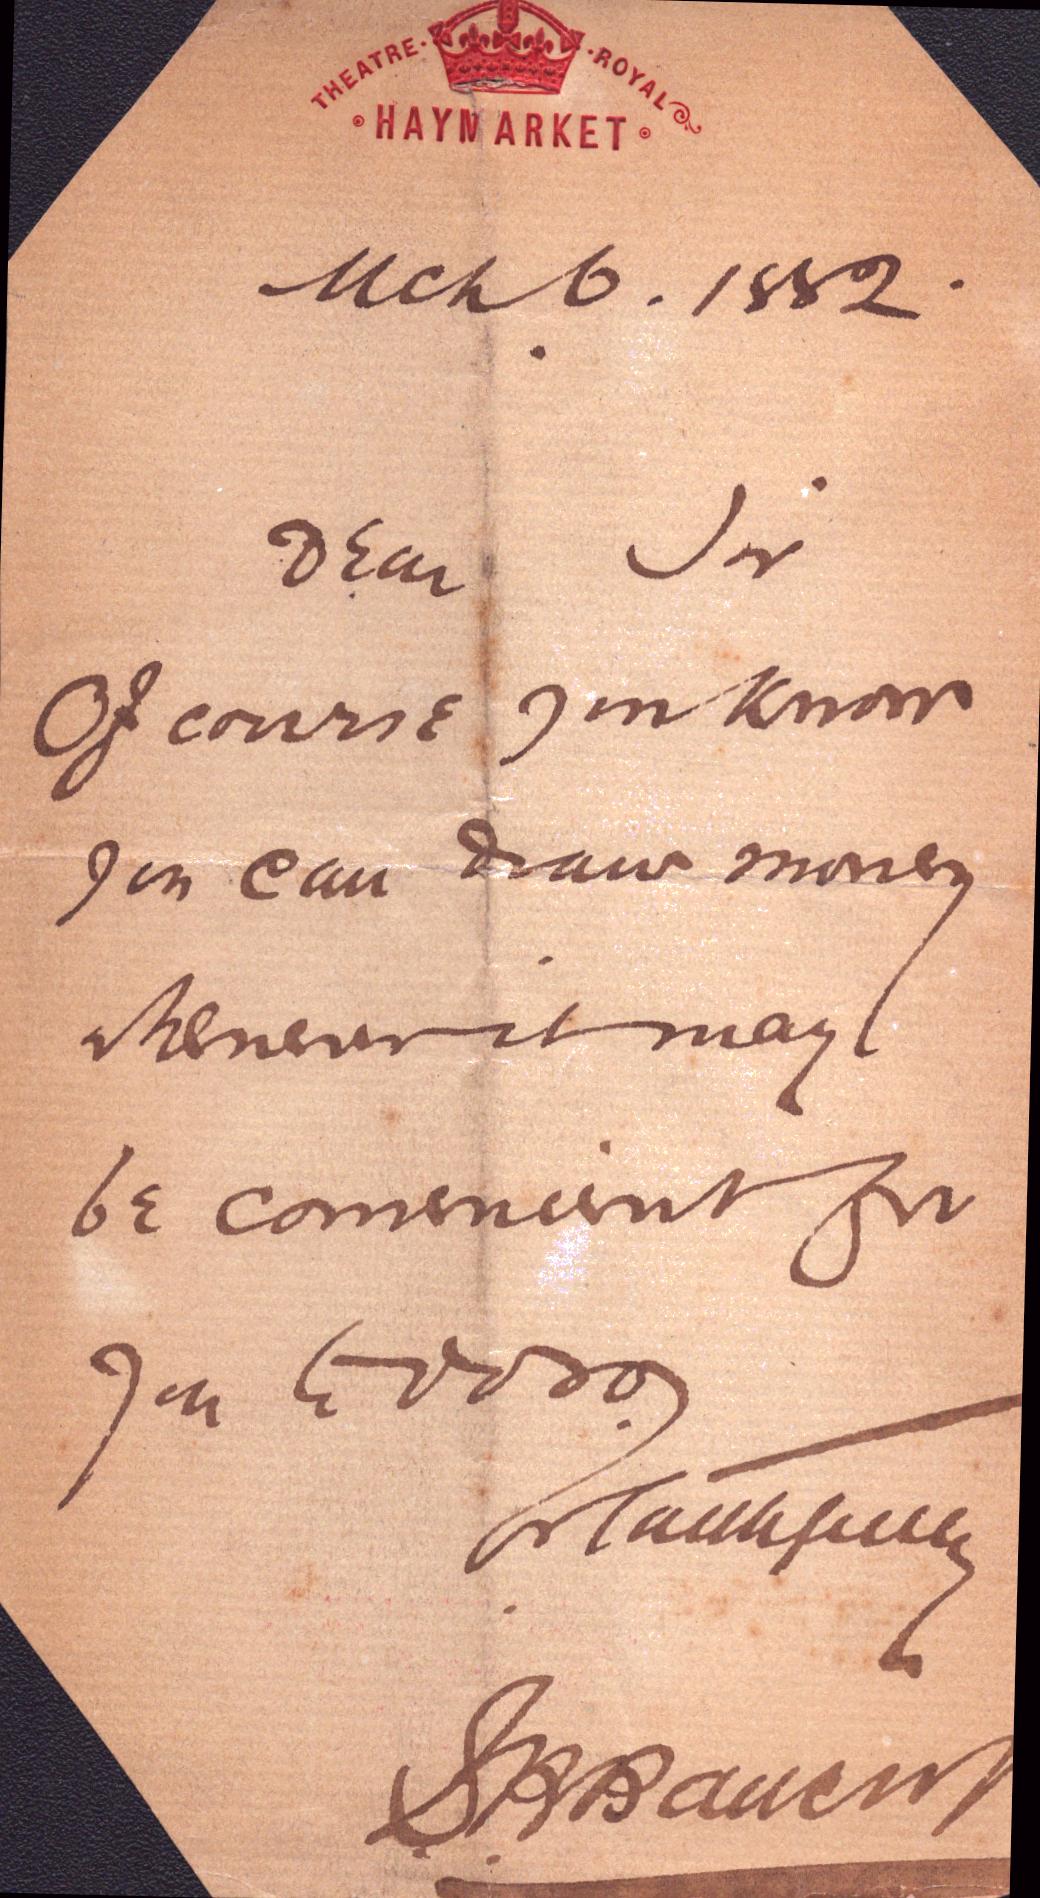 THEATRE · ROYAL
· HAYMARKET ·
Mch 6. 1882.
Dear Sir
Of course you know
you can draw money
whenever it may
be convenient for
you to do so.
Yr faithfully
S B Bancroft